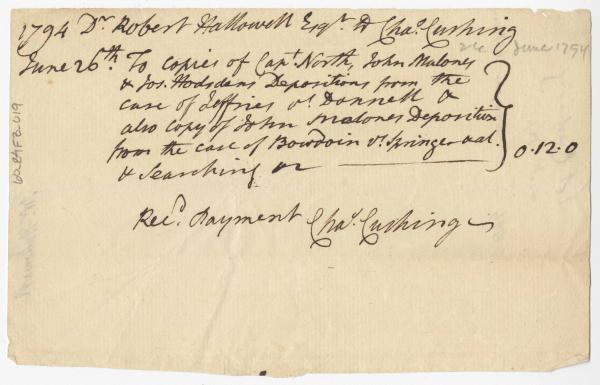 1794 Dr. Robert Hallowell Esqr. to Chas. Cushing
June 26th. To copies of Capt North, John Malones
& Jos. Hodsdens Depositions from the
case of Jeffries vs. Donnell &
also Copy of John Malones Deposition
from the case of Bowdoin vs. Springer & al.
& Searching 0.12.0
Recd. Payment Chas. Cushing
June 1794